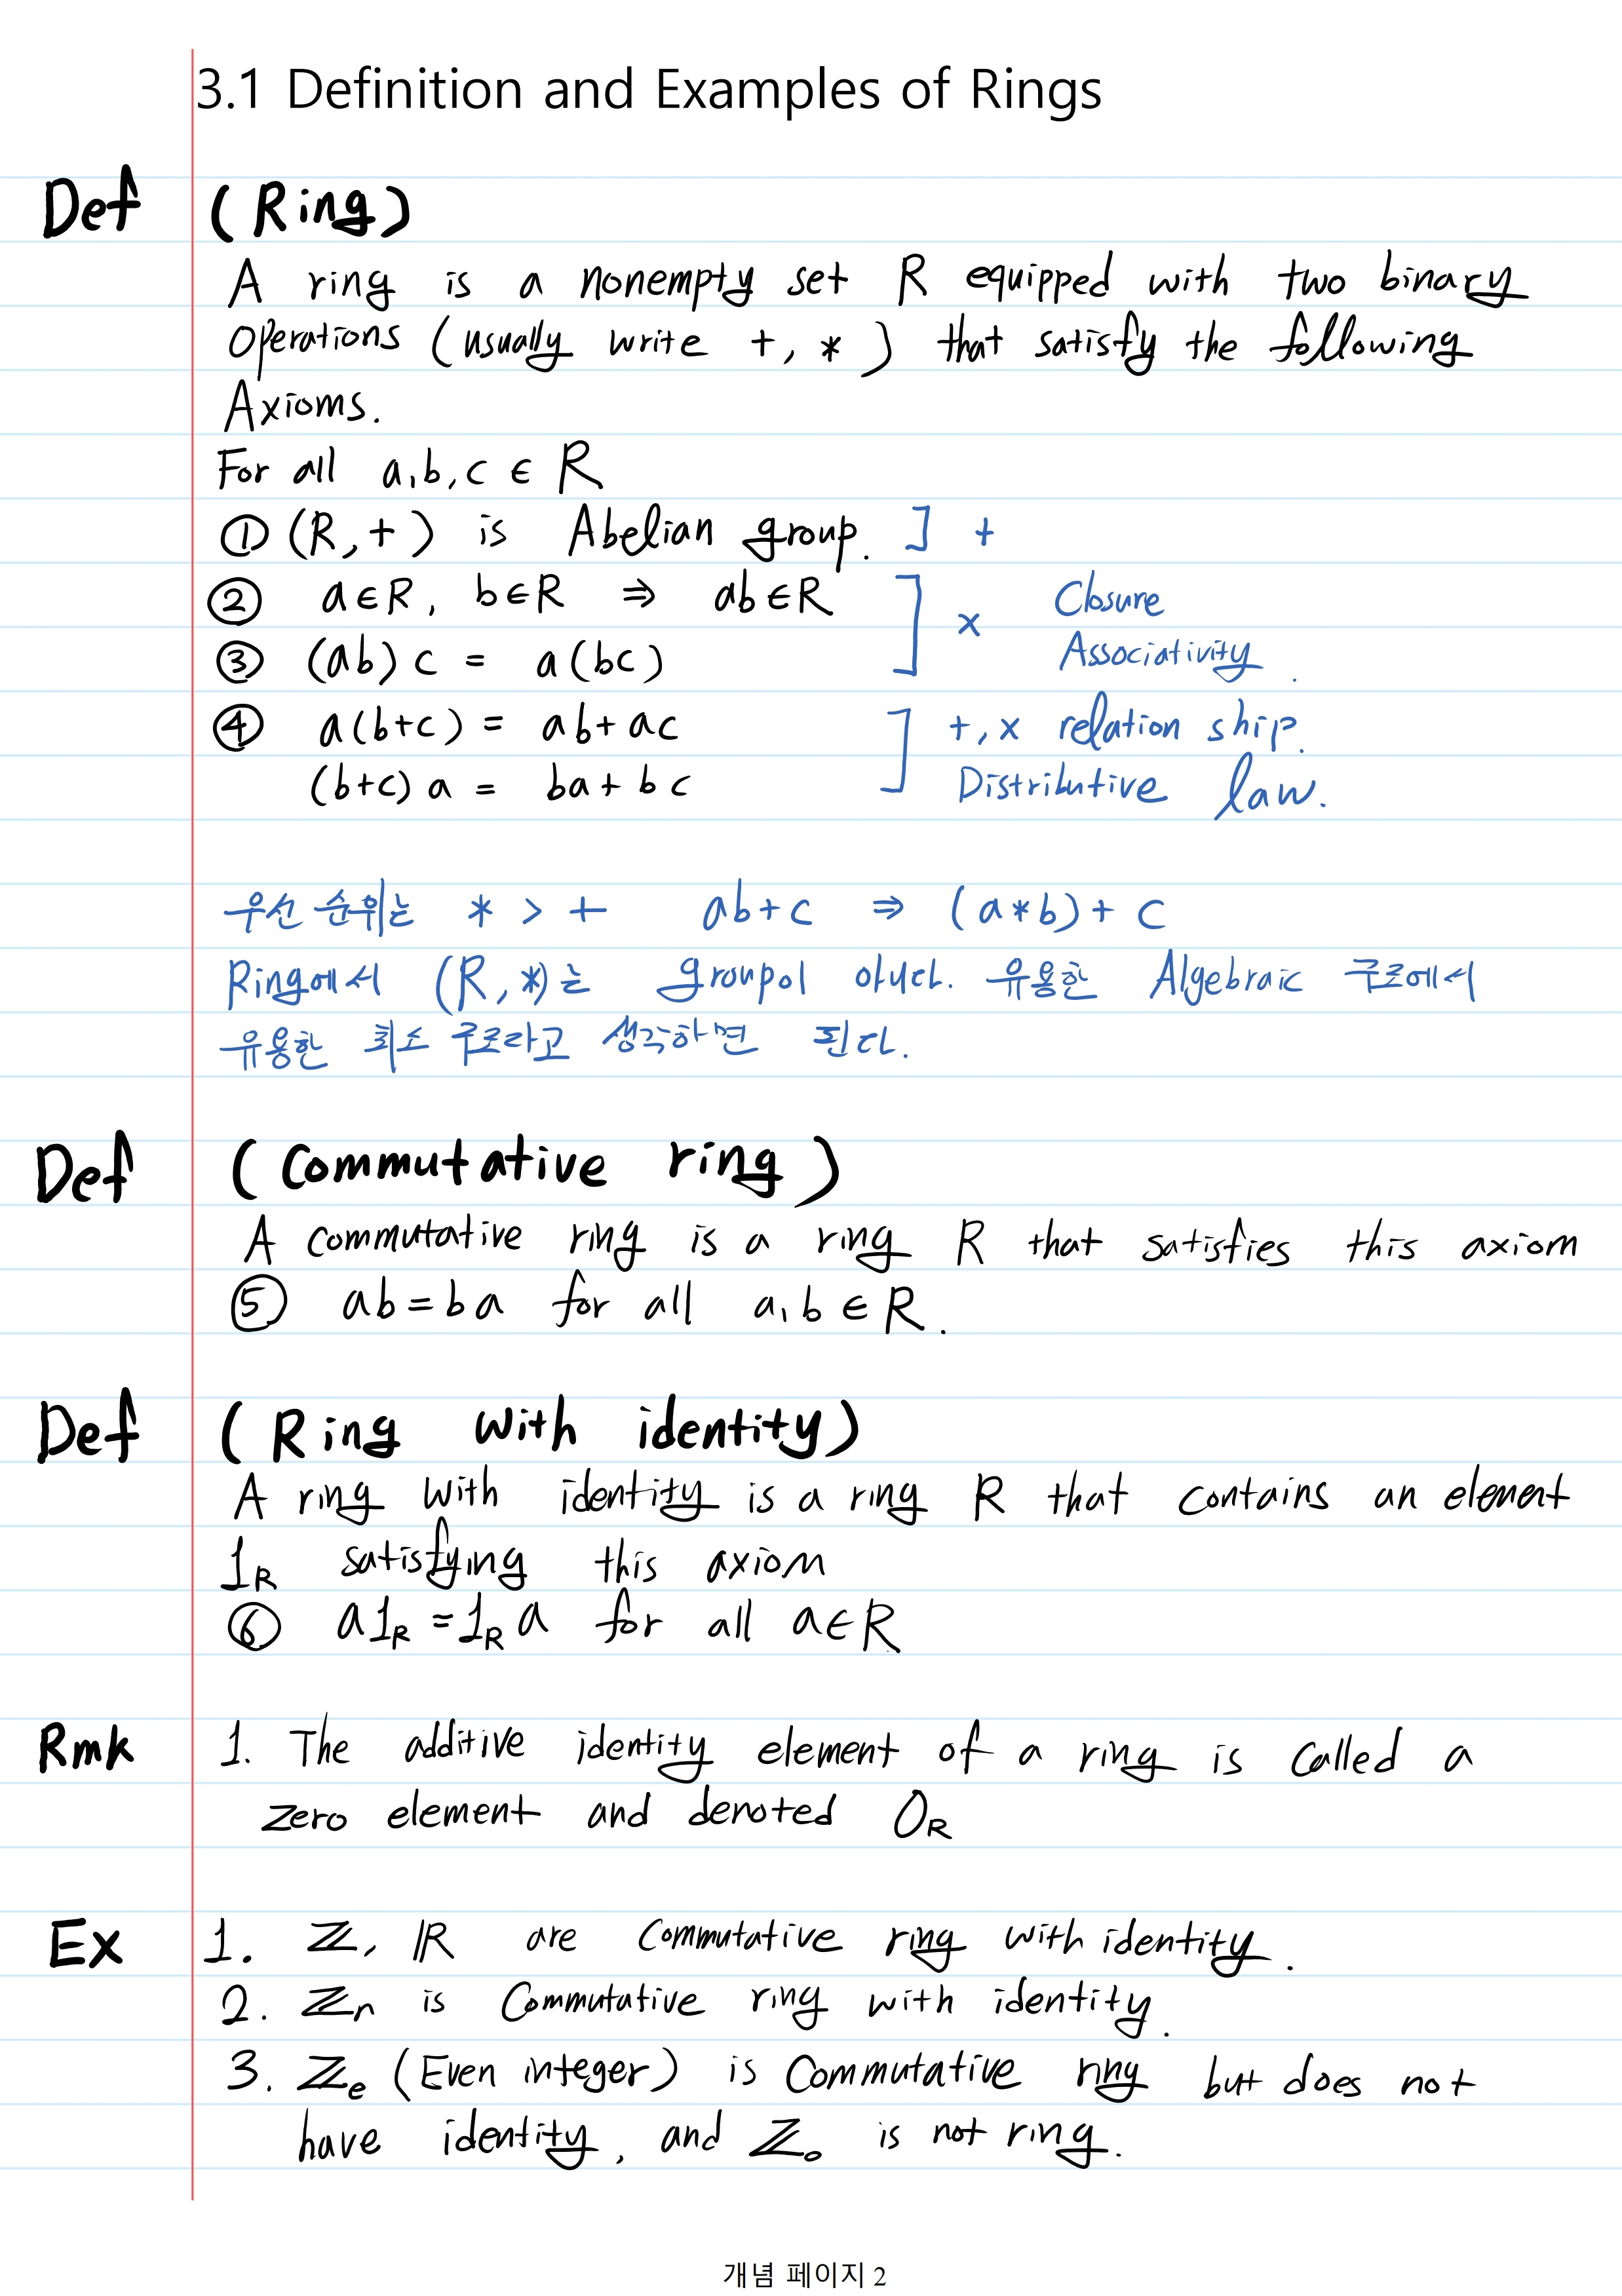 3.1 Definition and Examples of Rings
Def (Ring)
A ring is a nonempty set R equipped with two binary
operations (usually write +, *) that satisfy the following
Axioms.
For all a,b,c ∈ R
① (R,+) is Abelian group. ] +
② a∈R, b∈R ⇒ ab∈R ] × Closure
③ (ab)c = a(bc) Associativity.
④ a(b+c) = ab+ac ] +,× relation ship.
(b+c)a = ba+bc Distributive law.
우선 순위는 * > + ab+c ⇒ (a*b)+c
Ring에서 (R,*)는 group이 아니다. 유용한 Algebraic 구조에서
유용한 최소 구조라고 생각하면 된다.
Def (Commutative ring)
A commutative ring is a ring R that satisfies this axiom
⑤ ab=ba for all a,b∈R.
Def (Ring with identity)
A ring with identity is a ring R that contains an element
1_R satisfying this axiom
⑥ a1_R=1_R a for all a∈R
Rmk 1. The additive identity element of a ring is called a
zero element and denoted 0_R
Ex 1. ℤ, ℝ are Commutative ring with identity.
2. ℤ_n is Commutative ring with identity.
3. ℤ_e (Even integer) is Commutative ring but does not
have identity, and ℤ_o is not ring.
개념 페이지 2